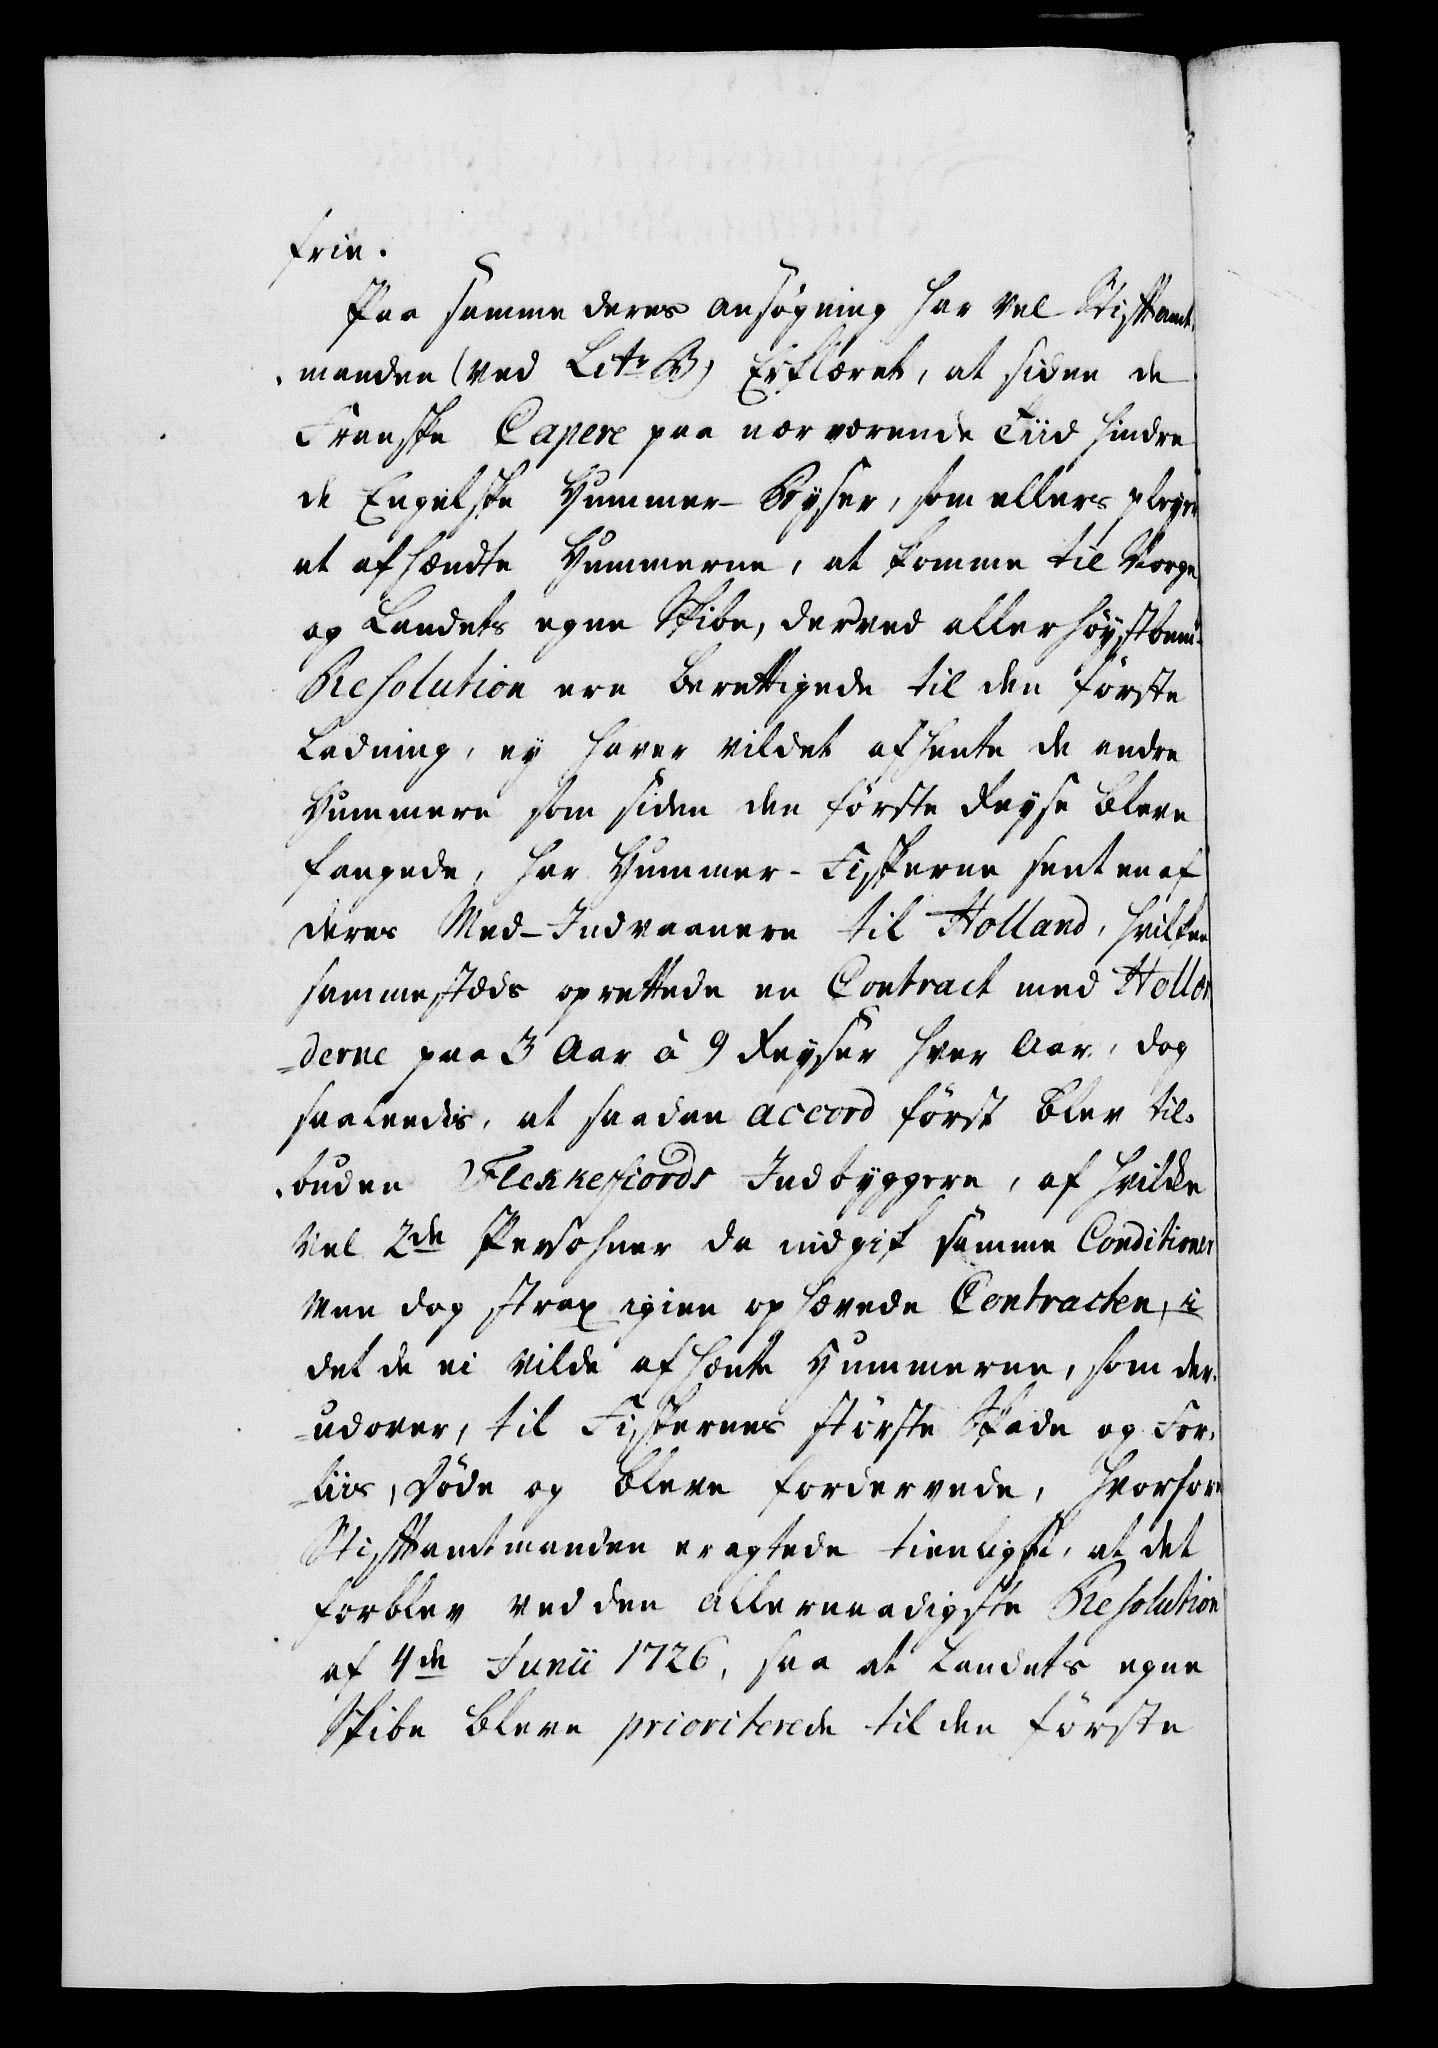 frie.
Paa samme deres ansøgning har vel Stiftamt-
manden (ved Litr B) Erklæret, at siden de
Franske Capere paa nærværende Tiid hindre
de Engelske Hummer-Byser, som ellers pleye
at afhændte Hummerne, at komme til Norge
og Landets egne Skibe, der ved allerhøystbem:
Resolution ere berettigede til den første
Ladning, ey haver vildet afhente de andre
Hummere som siden den første Reyse bleve
fangede, har Hummer-Fiskerne sent en af
deres Med-Indvaanere til Holland, hvilken
sammestæds oprettede en Contract med Hollæn
-derne paa 3 Aar à 9 Reyser hver Aar, dog
saaleedis, at saadan accord først blev til-
buden Flekkefiords Indbyggere, af hvilke
vel 2de Persohner da indgik samme Conditioner
Men dog strax igien ophævede Contracten, i
det de ei vilde afhænte Hummerne, som der-
-udover, til Fiskernes største Skade og For-
-liis, Døde og bleve fordervede, hvorfore
Stiftamtmanden eragtede tienligst, at det
forblev ved den allernaadigste Resolution
af 4de Junii 1726, saa at Landets egne
Skibe bleve prioriterede til den første